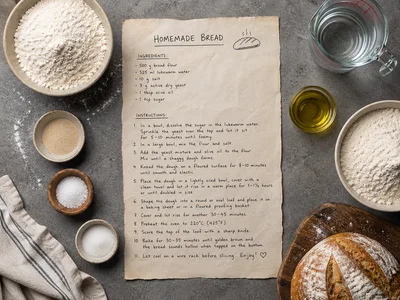 HOMEMADE BREAD
INGREDIENTS:
- 500 g bread flour
- 325 ml lukewarm water
- 10 g salt
- 3 g active dry yeast
- 1 tbsp olive oil
- 1 tsp sugar
INSTRUCTIONS:
1. In a bowl, dissolve the sugar in the lukewarm water.
Sprinkle the yeast over the top and let it sit
for 5-10 minutes until foamy.
2. In a large bowl, mix the flour and salt.
3. Add the yeast mixture and olive oil to the flour.
Mix until a shaggy dough forms.
4. Knead the dough on a floured surface for 8-10 minutes
until smooth and elastic.
5. Place the dough in a lightly oiled bowl, cover with a
clean towel and let it rise in a warm place for 1-1½ hrs
or until doubled in size.
6. Shape the dough into a round or oval loaf and place it on
a baking sheet or in a floured proofing basket.
7. Cover and let rise for another 30-45 minutes.
8. Preheat the oven to 220°C (425°F).
9. Score the top of the loaf with a sharp knife.
10. Bake for 30-35 minutes until golden brown and
the bread sounds hollow when tapped on the bottom.
11. Let cool on a wire rack before slicing. Enjoy! ♡